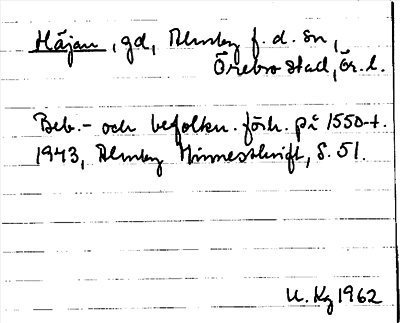 Håjan, gd, Almby f. d. sn,
Örebro stad, Ör. l.
Beb.- och befolkn. förh. på 1550-t.
1943, Almby Minnesskrift, S. 51.
U. Kg 1962